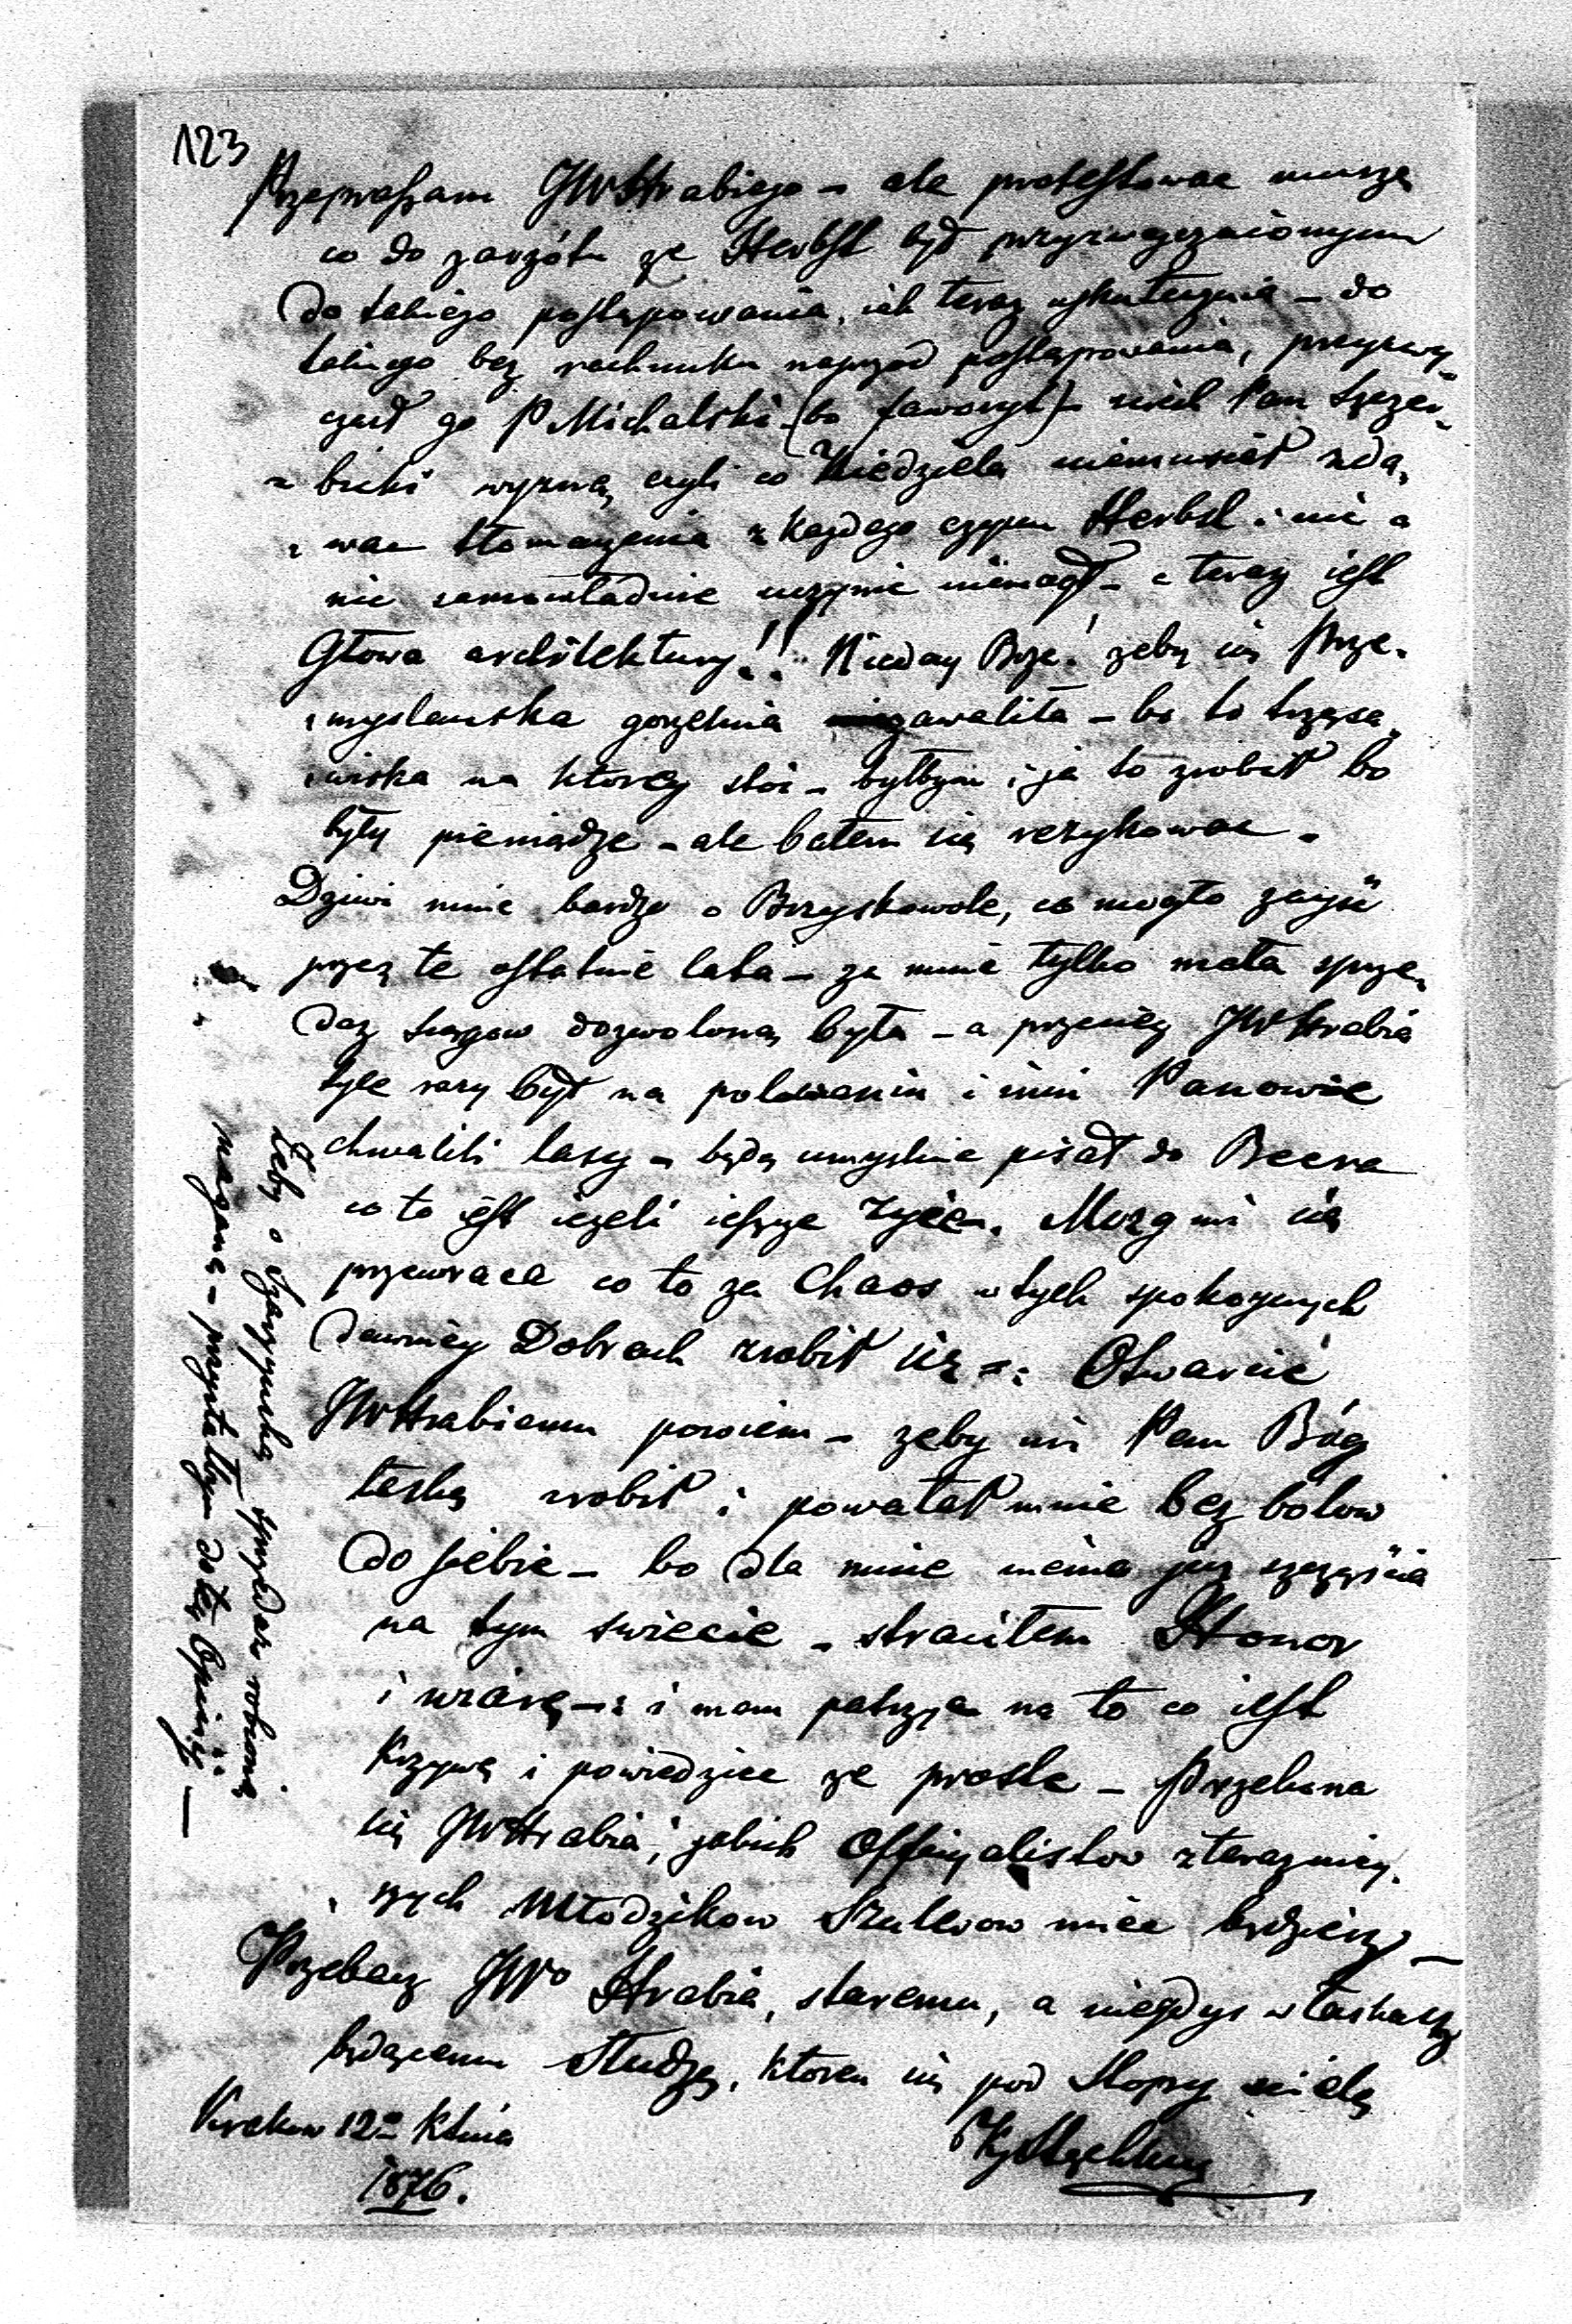 123
Przepraszam JWHrabiego – ale protestowac muszę
co do zarzótu ze Herbst był przyzwyczaionym
do takiego postępowania, iak teraz uskutecznia – do
takiego bez rachunku naprzod postępowania, przyzwy-
czaił go P Michalski – (bo faworyt) – niech Pan Szczer-
bicki wyzna, czyli co Niedziela niemusiał zda-
wac tłomaczenia z kazdego czynu Herbst i nic a
nic samowładnie uczynic niemogł – a teraz iest
Głowa architektury!! Nieday Boze! zeby się Prze-
mysławska gorzelnia zawaliła – bo to trzęsa-
wiska na ktorey stoi – byłbym i ja to zrobił bo
były pieniądze – ale bałem się rezykowac.
Dziwi mnie bardzo o Bryskowole, co mogło zajsć
przez te ostatnie lata – za mnie tylko mała sprze-
daz sągow dozwoloną była – a przeciez JWHrabia
tyle razy był na polowaniu i inni Panowie
chwalili lasy – będę umyslnie pisał do Beera
co to iest iezeli ieszcze zyie. Mozg mi się
przewraca co to za Chaos w tych spokoynych
dawniey Dobrach zrobił się –: Otwarcie
JWHrabiemu powiem – zeby mi Pan Bóg
łaskę zrobił i powałał mnie bez bolow
do siebie – bo dla mnie niema juz szczęścia
na tym swiecie – straciłem Honor
i wiarę –: i mam patrzyc na to co iest
Krzywe i powiedziec ze proste – Przekona
się JWHrabia, jakich Officyalistow z terazniey-
szych Młodzikow Szulerow miec będziesz –
Przebacz JWo Hrabia, staremu, a niegdys w łaskach
będącemu Słudze, ktoren się pod Stopy sciele
Krakow 12o Ktnia
1876.
Zeby o sprzedaz robioną
naganę – przystałbym do tey Opinij –